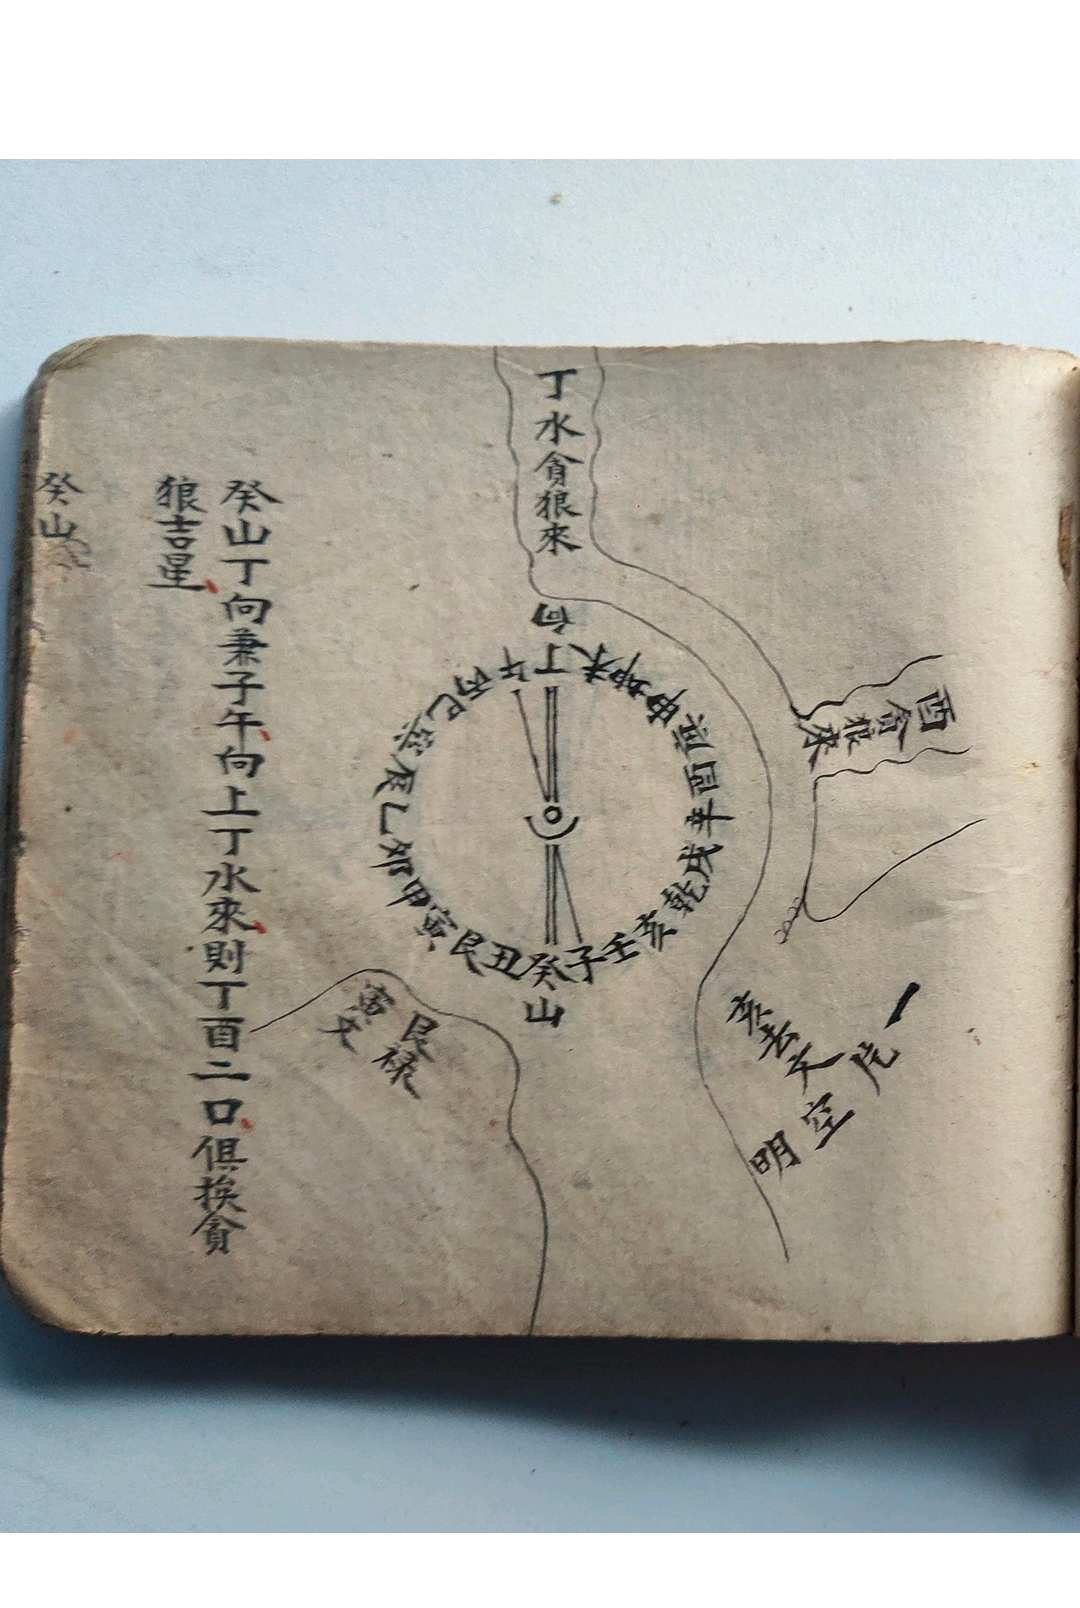 丁水貪狼來
酉貪狼來
向
丁未坤申庚酉辛戌乾亥壬子癸丑艮寅甲卯乙辰巽巳丙午
山
艮祿
寅文
亥去文
一
空
明
癸山丁向兼子午向上丁水來則丁酉二口俱挨貪
狼吉星
癸山